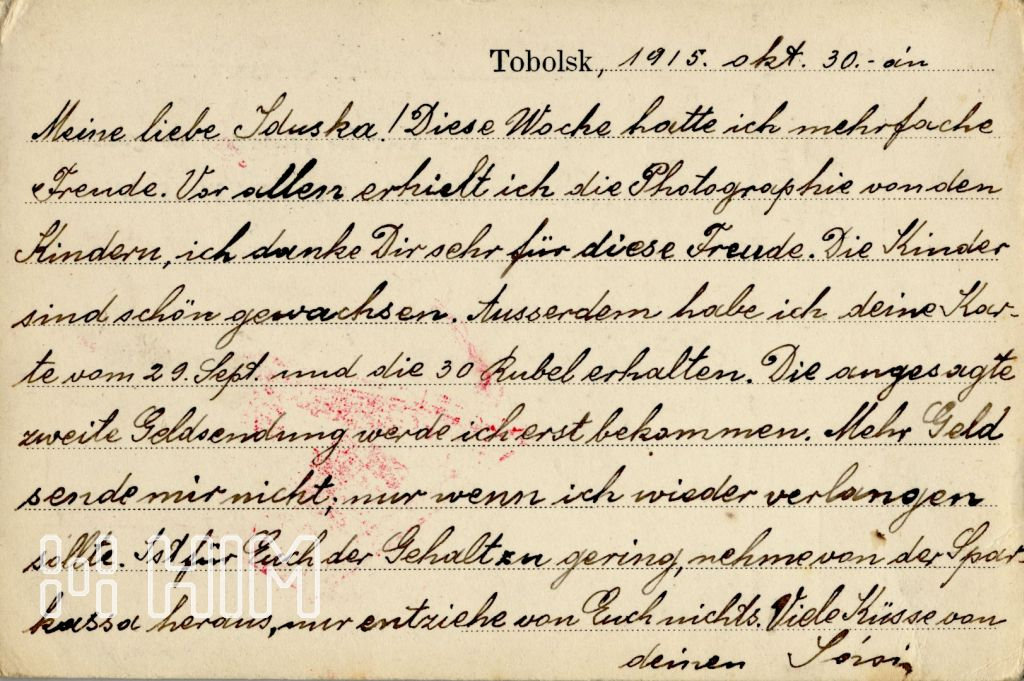 Tobolsk, 1915. okt. 30.-án
Meine liebe Iduska! Diese Woche hatte ich mehrfache
Freude. Vor allen erhielt ich die Photographie von den
Kindern, ich danke Dir sehr für diese Freude. Die Kinder
sind schön gewachsen. Ausserdem habe ich deine Kar-
te vom 29. Sept. und die 30 Rubel erhalten. Die angesagte
zweite Geldsendung werde ich erst bekommen. Mehr Geld
sende mir nicht, nur wenn ich wieder verlangen
sollte. Ist für Euch der Gehalt zu gering, nehme von der Spar-
kassa heraus, nur entziehe von Euch nichts. Viele Küsse von
deinen
HIM